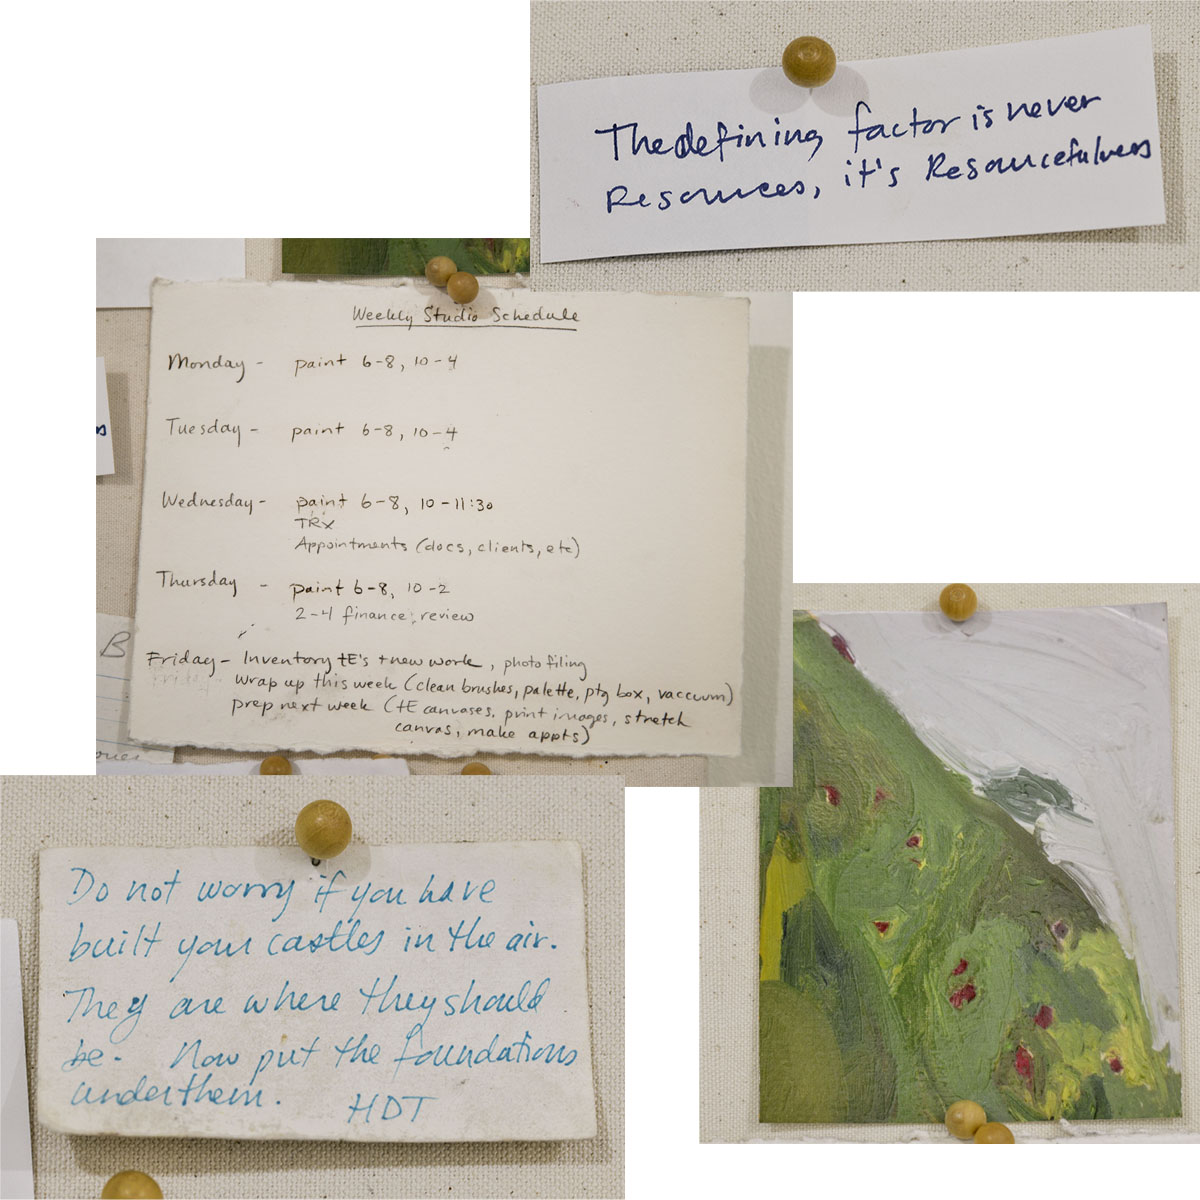 The defining factor is never
Resources, it's Resourcefulness
Weekly Studio Schedule
Monday - paint 6-8, 10-4
Tuesday - paint 6-8, 10-4
Wednesday - paint 6-8, 10-11:30
TRX
Appointments (docs, clients, etc)
Thursday - paint 6-8, 10-2
2-4 finance, review
B
Friday - Inventory tE's + new work, photo filing
Friday
wrap up this week (clean brushes, palette, ptg box, vaccuum)
prep next week (tE canvases, print images, stretch
canvas, make appts)
Do not worry if you have
built your castles in the air.
They are where they should
be. Now put the foundations
under them. HDT